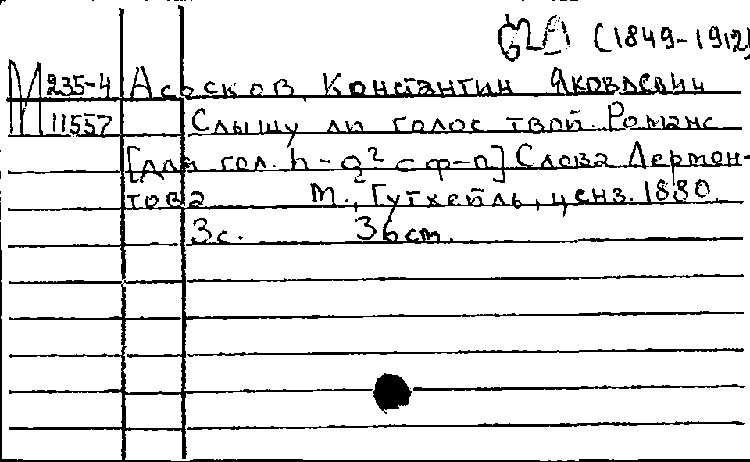 (1849-1912)
М 235-4 Асасков, Константин Яковлевич
11557 Слышу ли голос твой. Романс
[для гол. h-g² с ф-п] Слова Лермон-
това М., Гутхейль, ценз. 1880.
3с. 36cm.